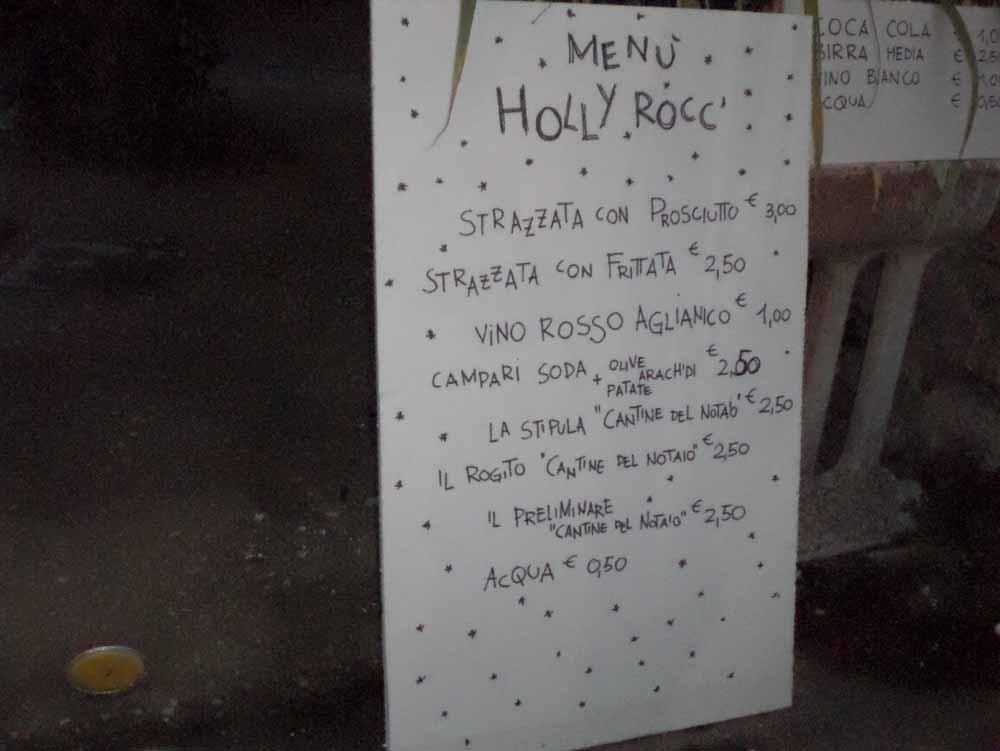 MENÙ
HOLLY ROCC'
STRAZZATA CON PROSCIUTTO € 3,00
STRAZZATA CON FRITTATA € 2,50
VINO ROSSO AGLIANICO € 1,00
CAMPARI SODA + OLIVE ARACHIDI PATATE € 2,50
LA STIPULA "CANTINE DEL NOTAIO" € 2,50
IL ROGITO "CANTINE DEL NOTAIO" € 2,50
IL PRELIMINARE
"CANTINE DEL NOTAIO" € 2,50
ACQUA € 0,50
COCA COLA € 1,0
BIRRA MEDIA € 2,5
VINO BIANCO € 1,0
ACQUA € 0,50